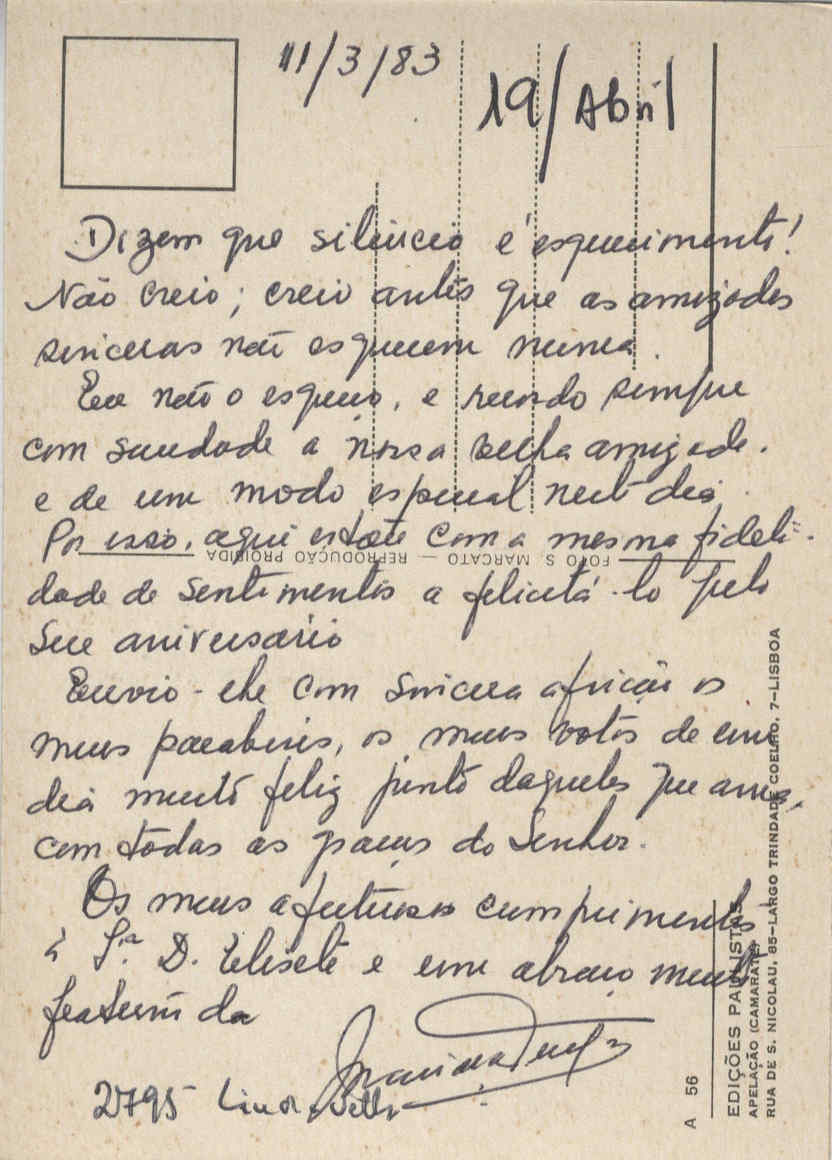 11/3/83
19/Abril
Dizem que silêncio é esquecimento!
Não creio; creio antes que as amizades
sinceras não esquecem nunca.
Eu não o esqueço, e recordo sempre
com saudade a nossa velha amizade.
e de um modo especial neste dia.
Por isso, aqui estou com a mesma fideli-
dade de sentimentos a felicitá-lo pelo
seu aniversário
Envio-lhe com sincera afeição os
meus parabéns, os meus votos de um
dia muito feliz junto daqueles que ama,
com todas as graças do Senhor.
Os meus afectuosos cumprimentos
à Sr.ª D. Elisete e um abraço muito
fraterno da
Mariana
2795 Linda-a-Velha
FOTO S MARCATO — REPRODUÇÃO PROIBIDA
A 56
EDIÇÕES PAULISTAS
APELAÇÃO (CAMARATE)
RUA DE S. NICOLAU, 85-LARGO TRINDADE COELHO, 7-LISBOA